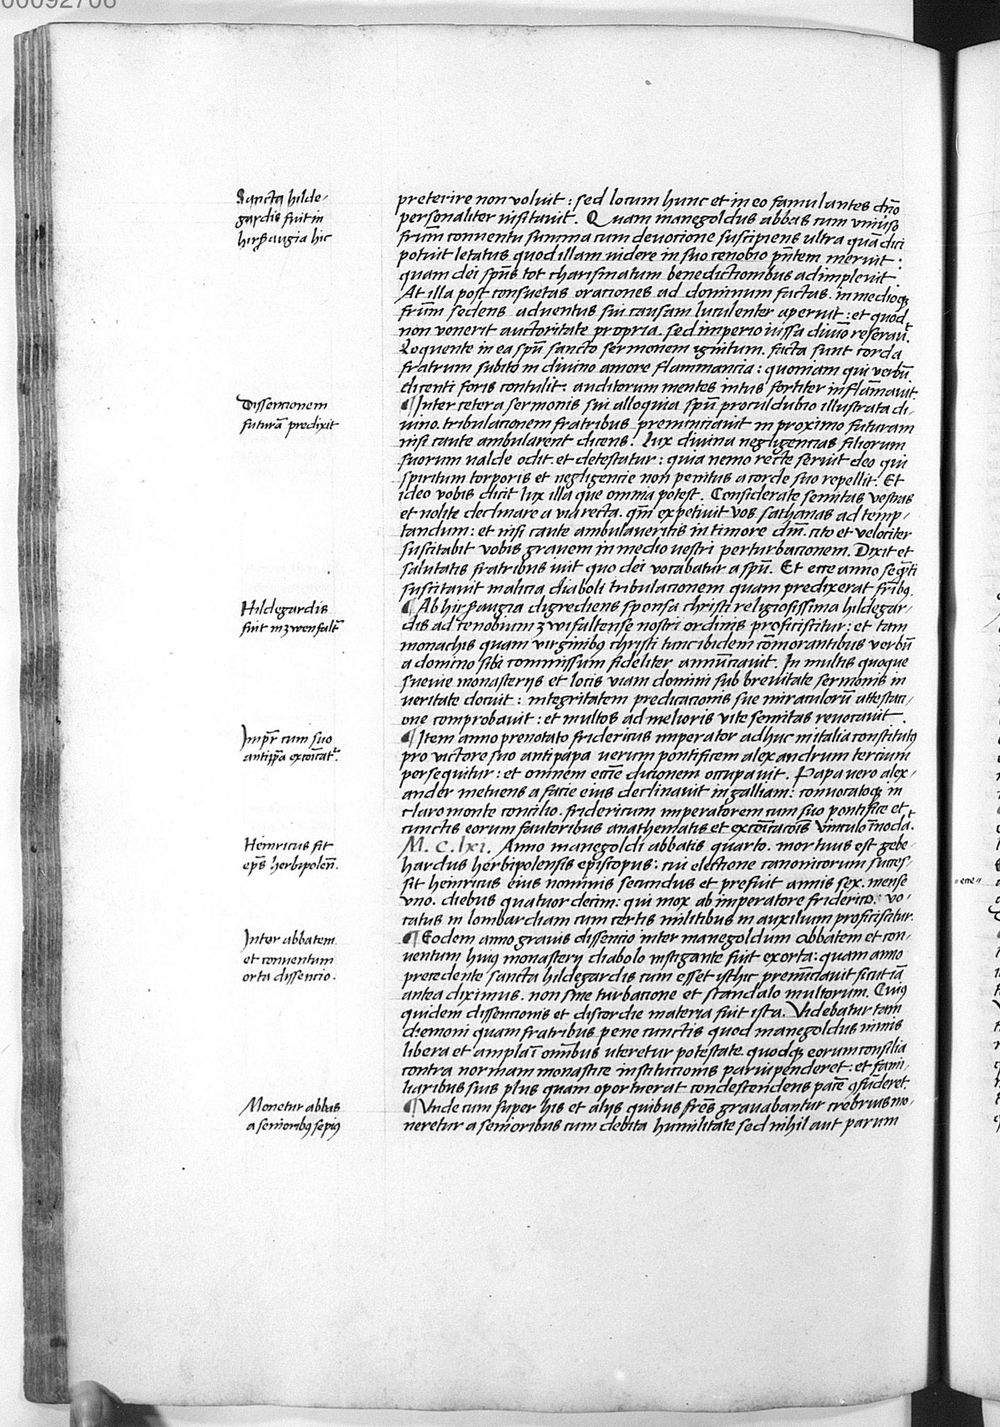 00092706
Sancta hilde-
gardis fuit in
hirsaugia hic
preterire non voluit : sed locum hunc et in eo famulantes dño
personaliter visitavit. Quam manegoldus abbas cum vniuso
frũm conventu summa cum devocione suscipiens ultra quã dici
potuit letatus quod illam videre in suo cenobio pñtem meruit :
quam dei spũs tot charismatum benedictionibus adimplevit.
At illa post consuetas oraciones ad dominum factas. in medioqꝫ
frũm sedens adventus sui causam luculenter aperuit : et quod
non venerit auctoritate propria. sed imperio iussa diuĩo reseraut̃.
Loquente in ea spũ sancto sermonem ignitum. facta sunt corda
fratrum subito in divino amore flammancia : quoniam qui verbũ
dicenti foris contulit. auditorum mentes intus fortiter inflãmauit.
Dissencionem
futurã predixit
¶ Inter cetera sermonis sui alloquia spũ proculdubio illustrata di-
uino. tribulacionem fratribus prenunciauit in proximo futuram
nisi caute ambularent dicens. Lux divina negligencias filiorum
suorum valde odit. et detestatur : quia nemo recte seruit deo qui
spiritum torporis et negligencie non penitus a corde suo repellit. Et
ideo vobis dicit lux illa que omnia potest. Considerate semitas vestras
et nolite declinare a via recta. qm̃ expetiuit vos sathanas ad temp-
tandum : et nisi caute ambulaveritis in timore dñi. cito et velociter
suscitabit vobis gravem in medio vestri perturbacionem. Dixit et
salutatis fratribus iuit quo dei vocabatur a spũ. Et ecce anno seq̃ti
suscitauit malicia diaboli tribulacionem quam predixerat frĩbꝫ.
Hildegardis
fuit in zwenfalt̃
¶ Ab hirsaugia digrediens sponsa christi religiosissima hildegar-
dis ad cenobium zwifaltense nostri ordinis proficiscitur : et tam
monachis quam virginibꝫ christi tunc ibidem cõmorantibus verbũ
a domino sibi commissum fideliter annũciauit. In multis quoque
suevie monasterijs et locis viam domini sub brevitate sermonis in
veritate docuit : integritatem predicacionis sue miraculorũ attestaci-
one comprobauit : et multos ad melioris vite semitas reuocauit .
Impr̃ cum suo
antipp̃a excõicat̃.
¶ Item anno prenotato fridericus imperator adhuc in italia constitutꝰ
pro victore suo antipapa verum pontificem alexandrum tercium
persequitur : et omnem eccĩe dicionem occupauit. Papa vero alex-
ander metuens a facie eius declinauit in galliam : convocatoqꝫ in
claromonte concilio. fridericum imperatorem cum suo pontifice et
cunctis eorum fautoribus anathematis et excõicacõis vinculo ĩnodat.
Heinricus fit
ep̃s herbipoleñ.
M. C. lxi. Anno manegoldi abbatis quarto. mortuus est gebe-
hardus herbipolensis episcopus : cui electione canonicorum succes-
sit heinricus eius nominis secundus et prefuit annis sex. mense
vno. diebus quatuordecim : qui mox ab imperatore friderico. vo-
catus in lombardiam cum certis militibus in auxilium proficiscitur.
Inter abbatem
et conventum
orta dissencio.
¶ Eodem anno gravis dissencio inter manegoldum abbatem et con-
uentum huiꝰ monasterij diabolo instigante fuit exorta : quam anno
precedente sancta hildegardis cum esset isthic prenũciauit sicut iã
antea diximus. non sine turbacione et scandalo multorum. Cuiꝰ
quidem dissencionis et discordie materia fuit ista. Videbatur tam
demoni quam fratribus pene cunctis quod manegoldus nimis
libera et amplaĩ omĩbus uteretur potestate. quodqꝫ eorum consilia
contra normam monastice institucionis parvipenderet : et fami-
liaribus suis plus quam oportuerat condescendens pace ꝯfuderet.
Monetur abbas
a senioribꝫ sepiꝰ
¶ Vnde cum super his et alijs quibus frẽs gravabantur crebrius mo-
neretur a senioribus cum debita humilitate sed nihil aut parum